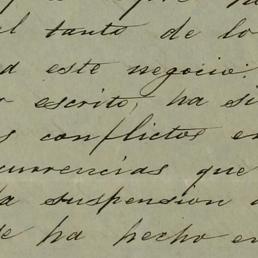 el tanto de lo
este negocio.
escrito, ha si
conflictos en
currencias que
la suspension
se ha hecho en